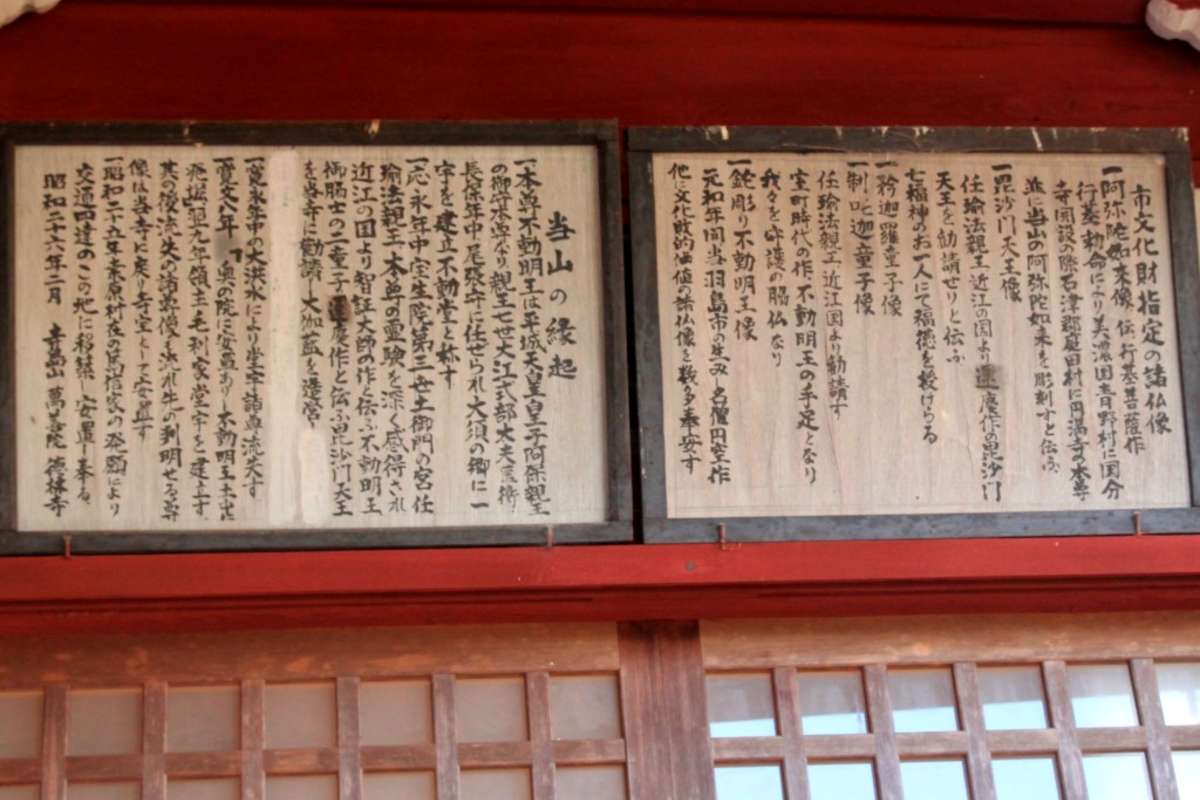 市文化財指定の諸仏像
一阿弥陀如来像 伝 行基菩薩作
行基 勅命により美濃国青野村に国分
寺開設の際石津郡庭田村に円満寺の本尊
並に当山の阿弥陀如来を彫刻すと伝ふ
一毘沙門天王像
任瑜法親王 近江の国より運慶作の毘沙門
天王を勧請せりと伝ふ
七福神のお一人にて福徳を授けらる
一矜迦羅童子像
一制吒迦童子像
任瑜法親王 近江国より勧請す
室町時代の作 不動明王の手足となり
我々を守護の脇仏なり
一鉈彫り不動明王像
元和年間当羽島市の生み 名僧円空作
他に文化敗的価値の諸仏像を数多奉安す
当山の縁起
一本尊不動明王は平城天皇皇子阿保親王
の御守本尊なり 親王七世大江式部大夫匡衡
長保年中尾張守に任せられ大須の郷に一
宇を建立不動堂と称す
一応永年中宝生院第三世土御門の宮任
瑜法親王 本尊の霊験を深く感得され
近江の国より智証大師の作と伝ふ不動明王
御脇士の二童子 慶作と伝ふ毘沙門天王
を当寺に勧請し大伽藍を造営
一寛永年中の大洪水により堂宇諸尊流失す
一寛文八年 奥の院に安置あり 不動明王土中に
翌九年領主毛利家堂宇を建立す
其の後流失の諸尊像 流れ 判明せる尊
像は当寺に戻り寺宝として安置す
一昭和二十五年桑原村在の民信家の発願により
交通四達のこの地に移築し安置し奉る
昭和二十六年二月 寺島山 萬善院 徳林寺